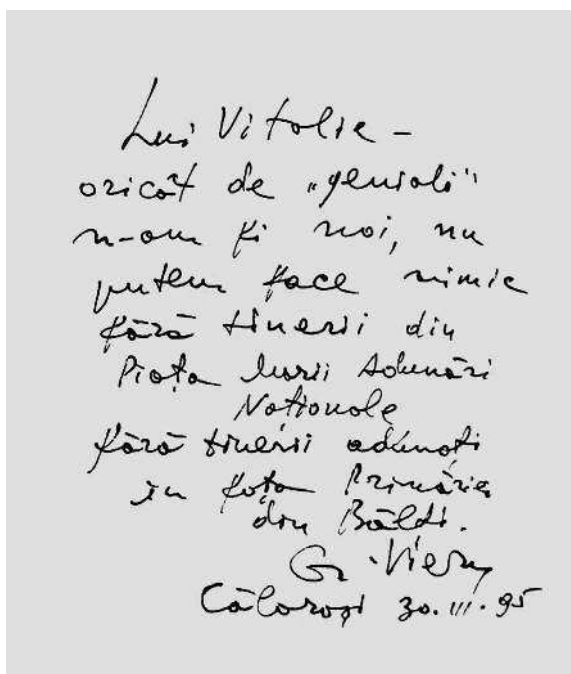 Lui Vitalie –
oricât de „geniali"
n-am fi noi, nu
putem face nimic
fără tinerii din
Piața Marii Adunări
Naționale
fără tinerii adunați
în fața Primăriei
din Bălți.
Gr. Vieru
Călărași 30.III.95